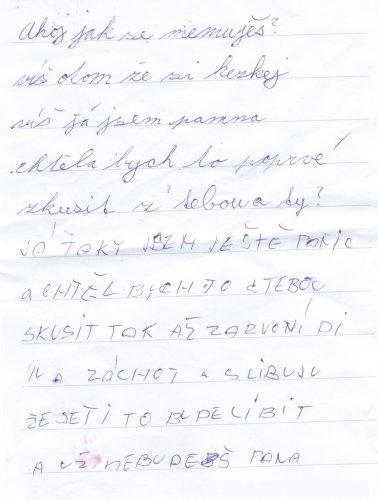 Ahoj jak se memuješ?
víš o tom že si hezkej
víš já jsem panna
chtěla bych to poprvé
zkusit s tebou a ty?
JÁ TAKY JSEM JEŠTĚ PANIC
a CHTĚL BYCH TO S TEBOU
SKUSIT TAK AŽ ZAZVONÍ DI
NA ZÁCHOT A SLIBUJU
ŽE SETI TO BUDE LÍBIT
A UŽ NEBUDEŠ PANA